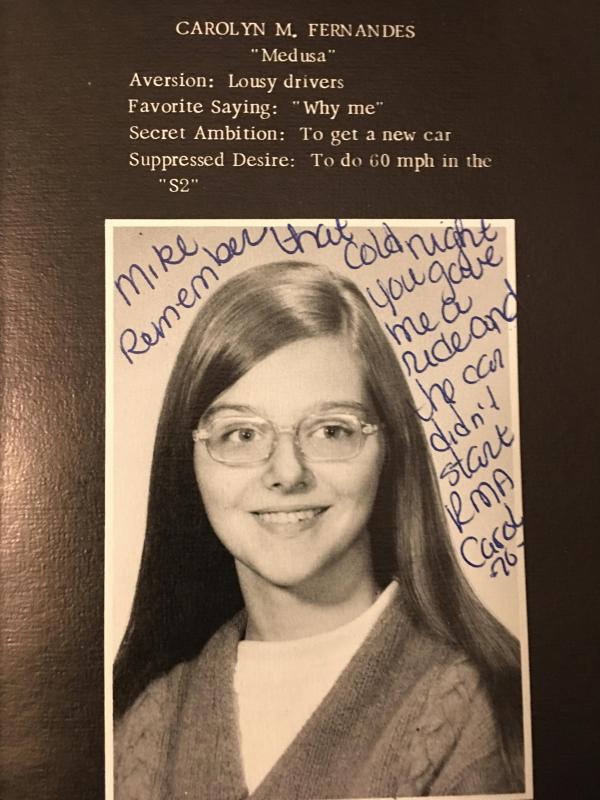 CAROLYN M. FERNANDES
"Medusa"
Aversion: Lousy drivers
Favorite Saying: "Why me"
Secret Ambition: To get a new car
Suppressed Desire: To do 60 mph in the
"S2"
Mike
Remember that
cold night
you gave
me a
ride and
the car
didn't
start
RMA
Carol
-70-